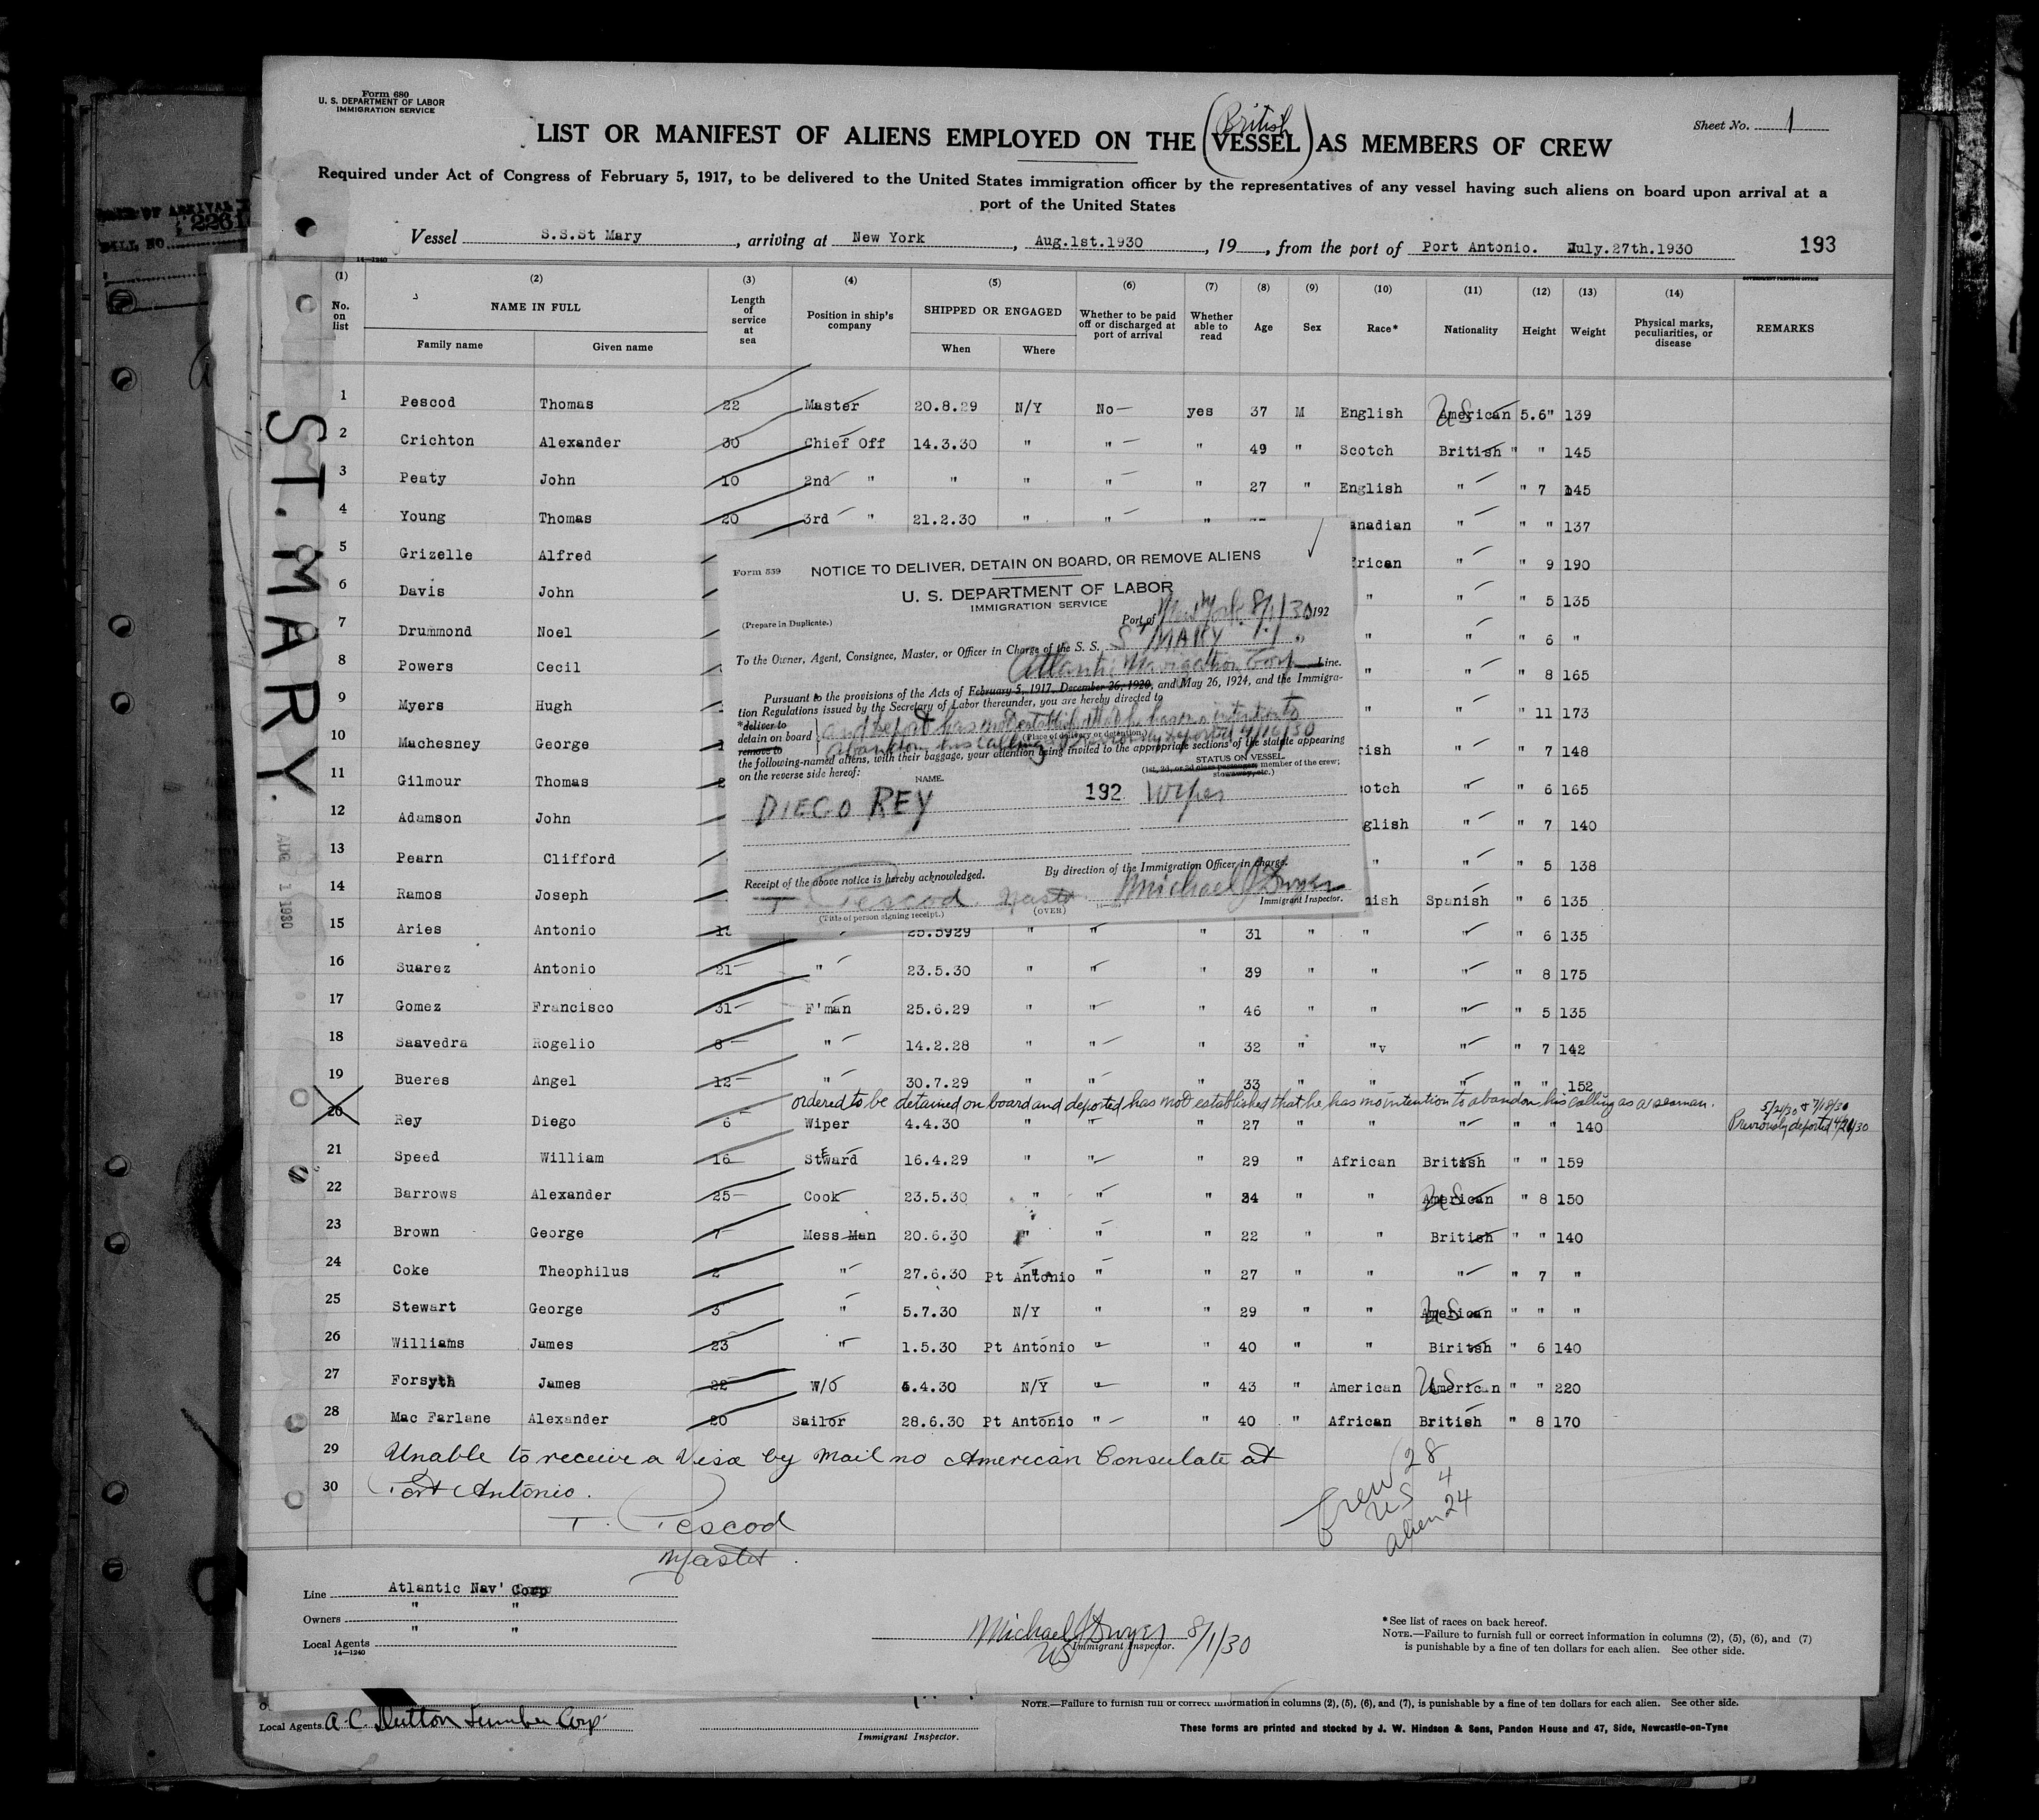 Form 680
U. S. DEPARTMENT OF LABOR
IMMIGRATION SERVICE
Sheet No. 1
British
LIST OR MANIFEST OF ALIENS EMPLOYED ON THE (VESSEL) AS MEMBERS OF CREW
Required under Act of Congress of February 5, 1917, to be delivered to the United States immigration officer by the representatives of any vessel having such aliens on board upon arrival at a
port of the United States
Vessel S.S.St Mary, arriving at New York, Aug.1st.1930, 19, from the port of Port Antonio. July.27th.1930 193
14—1240
(1) (2) (3) (4) (5) (6) (7) (8) (9) (10) (11) (12) (13) (14)
No. on list NAME IN FULL Length of service at sea Position in ship's company SHIPPED OR ENGAGED Whether to be paid off or discharged at port of arrival Whether able to read Age Sex Race* Nationality Height Weight Physical marks, peculiarities, or disease REMARKS
Family name Given name When Where
1 Pescod Thomas 22 Master 20.8.29 N/Y No— yes 37 M English American US 5.6" 139
2 Crichton Alexander 30 Chief Off 14.3.30 " " " 49 " Scotch British " " 145
3 Peaty John 10 2nd " " " " " 27 " English " " 7 145
4 Young Thomas 20 3rd " 21.2.30 " " " anadian " " " 137
5 Grizelle Alfred rican " " 9 190
6 Davis John " " " 5 135
7 Drummond Noel " " " 6 "
8 Powers Cecil " " " 8 165
9 Myers Hugh " " " 11 173
10 Machesney George rish " " 7 148
11 Gilmour Thomas otch " " 6 165
12 Adamson John glish " " 7 140
13 Pearn Clifford " " " 5 138
14 Ramos Joseph nish Spanish " 6 135
15 Aries Antonio " 25.5929 " " " 31 " " " " 6 135
16 Suarez Antonio 21 " 23.5.30 " " " 39 " " " " 8 175
17 Gomez Francisco 31 F'man 25.6.29 " " " 46 " " " " 5 135
18 Saavedra Rogelio 8 " 14.2.28 " " " 32 " "v " " 7 142
19 Bueres Angel 12 " 30.7.29 " " " 33 " " " " " 152
ordered to be detained on board and deported has not established that he has no intention to abandon his calling as a seaman.
5/21/30 & 7/18/30
20 Rey Diego 6 Wiper 4.4.30 " " " 27 " " " " " 140 Previously deported 4/26/30
21 Speed William 16 Steward 16.4.29 " " " 29 " African British " " 159
22 Barrows Alexander 25 Cook 23.5.30 " " " 34 " " American US " 8 150
23 Brown George 7 Mess Man 20.6.30 " " " 22 " " British " " 140
24 Coke Theophilus 2 " 27.6.30 Pt Antonio " " 27 " " " " 7 "
25 Stewart George 3 " 5.7.30 N/Y " " 29 " " American US " " "
26 Williams James 23 " 1.5.30 Pt Antonio " " 40 " " Biritsh " 6 140
27 Forsyth James 22 W/O 4.30 N/Y " " 43 " American American US " " 220
28 Mac Farlane Alexander 20 Sailor 28.6.30 Pt Antonio " " 40 " African British " 8 170
29 Unable to receive a Visa by Mail no American Consulate at
30 Port Antonio.
T. Pescod
Master.
Crew 28
US 4
alien 24
Line Atlantic Nav' Corp
Owners " "
Local Agents " "
14—1240
Michael J Dwyer 8/1/30
US Immigrant Inspector.
*See list of races on back hereof.
NOTE.—Failure to furnish full or correct information in columns (2), (5), (6), and (7)
is punishable by a fine of ten dollars for each alien. See other side.
ST. MARY.
AUG 1 1930
Form 539
NOTICE TO DELIVER, DETAIN ON BOARD, OR REMOVE ALIENS
U. S. DEPARTMENT OF LABOR
IMMIGRATION SERVICE
(Prepare in Duplicate.)
Port of New York 8/1/30 192
To the Owner, Agent, Consignee, Master, or Officer in Charge of the S. S. ST MARY
Atlantic Navigation Corp Line.
Pursuant to the provisions of the Acts of February 5, 1917, December 26, 1920, and May 26, 1924, and the Immigra-
tion Regulations issued by the Secretary of Labor thereunder, you are hereby directed to
*deliver to
detain on board
remove to
and deport has not established that he has no intention to
(Place of delivery or detention.)
abandon his calling Previously deported 4/26/30
the following-named aliens, with their baggage, your attention being invited to the appropriate sections of the statute appearing
on the reverse side hereof:
NAME.
STATUS ON VESSEL.
(1st, 2d, or 3d class passenger, member of the crew;
stowaway, etc.)
DIEGO REY 192 Wiper
Receipt of the above notice is hereby acknowledged.
By direction of the Immigration Officer in charge.
T. Pescod Master
Michael J Dwyer
(Title of person signing receipt.)
(OVER)
Immigrant Inspector.
BILL NO.
Local Agents. A. C. Dutton Lumber Corp.
Immigrant Inspector.
NOTE.—Failure to furnish full or correct information in columns (2), (5), (6), and (7), is punishable by a fine of ten dollars for each alien. See other side.
These forms are printed and stocked by J. W. Hindson & Sons, Pandon House and 47, Side, Newcastle-on-Tyne